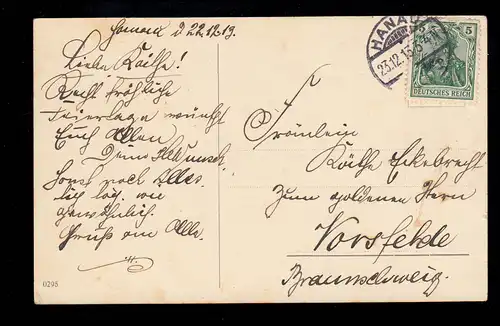 Hanau d 22.12.13.
Liebe Käthe!
Recht fröhliche
Feiertage wünscht
Euch Allen
Deine
Sonst noch Alles
wie
gewöhnlich.
Gruß an Alle.
0295
HANAU
23.12.13.
5
DEUTSCHES REICH
Fräulein
Käthe Eckebrecht
Zum goldenen Stern
Vorsfelde
Braunschweig.